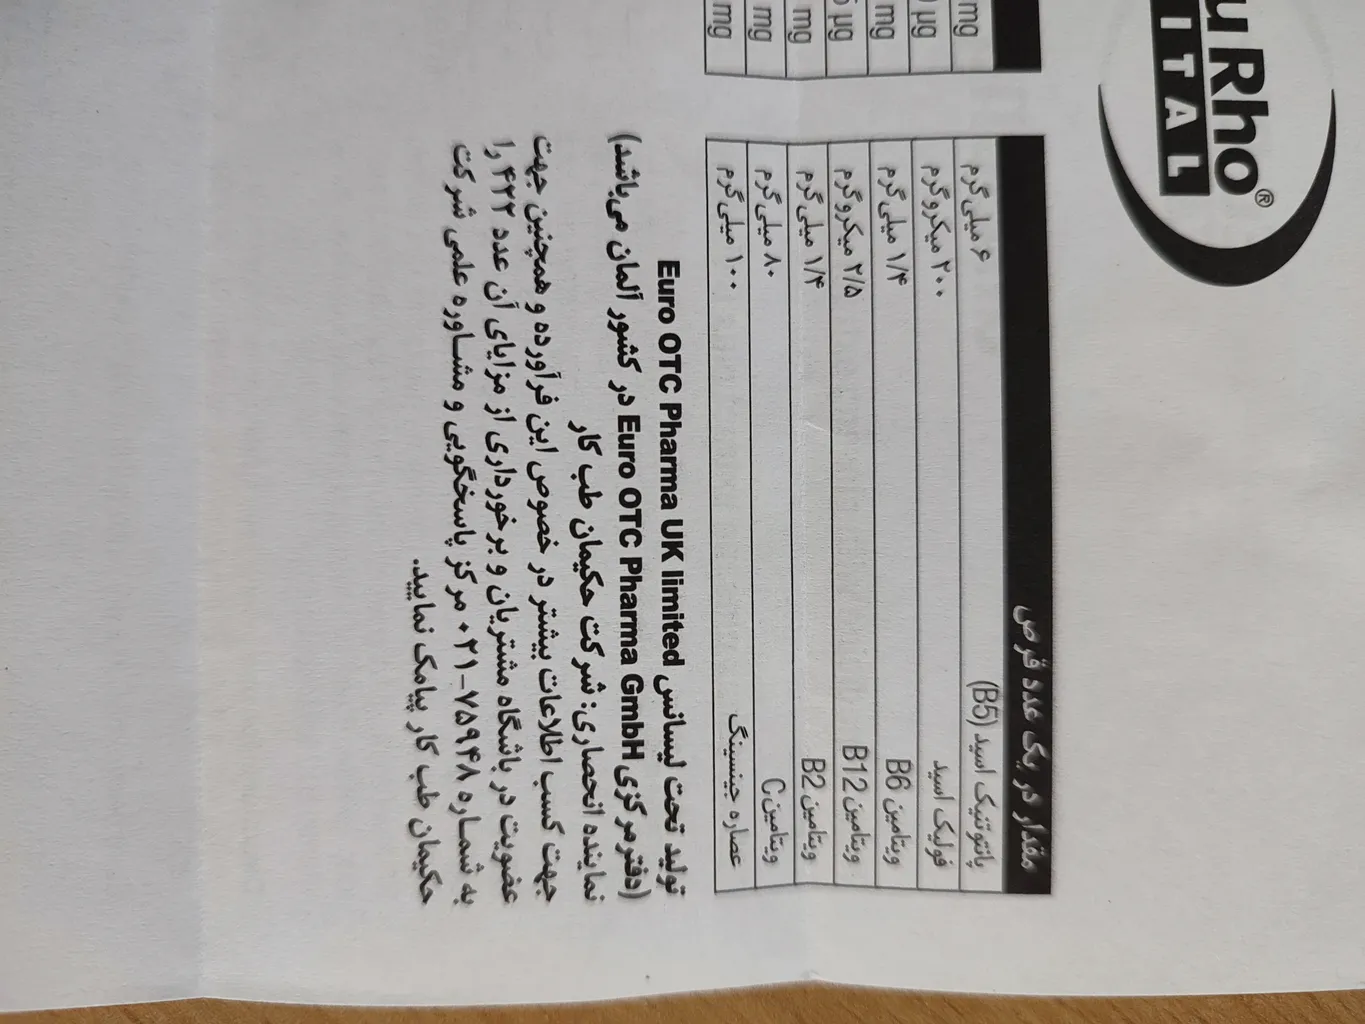 u Rho®
ITAL
mg
µg
mg
µg
mg
mg
mg
مقدار در یک عدد قرص
پانتوتنیک اسید (B5) ۶ میلی گرم
فولیک اسید ۲۰۰ میکروگرم
ویتامین B6 ۱/۴ میلی گرم
ویتامین B12 ۲/۵ میکروگرم
ویتامین B2 ۱/۴ میلی گرم
ویتامین C ۸۰ میلی گرم
عصاره جینسینگ ۱۰۰ میلی گرم
تولید تحت لیسانس Euro OTC Pharma UK limited
(دفتر مرکزی Euro OTC Pharma GmbH در کشور آلمان می‌باشد)
نماینده انحصاری: شرکت حکیمان طب کار
جهت کسب اطلاعات بیشتر در خصوص این فرآورده و همچنین جهت
عضویت در باشگاه مشتریان و برخورداری از مزایای آن عدد ۴۲۲ را
به شماره ۷۵۹۴۸-۰۲۱ مرکز پاسخگویی و مشاوره علمی شرکت
حکیمان طب کار پیامک نمایید.